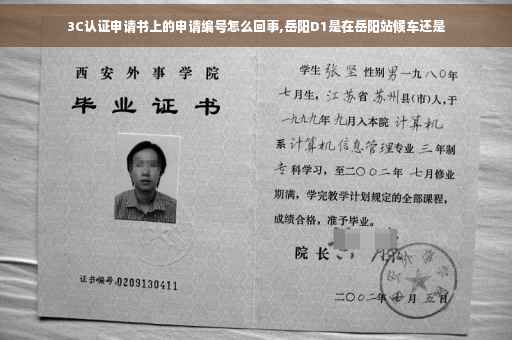 3C认证申请书上的申请编号怎么回事,岳阳D1是在岳阳站候车还是
西安外事学院
毕业证书
证书编号:0209130411
学生 张坚 性别男 一九八〇年
七月生，江苏省 苏州县(市)人，于
一九九九年 九月入本院 计算机
系 计算机信息管理专业 三 年制
专 科学习，至二〇〇二年 七月修业
期满，学完教学计划规定的全部课程，
成绩合格，准予毕业。
院长
二〇〇二年 月 五日